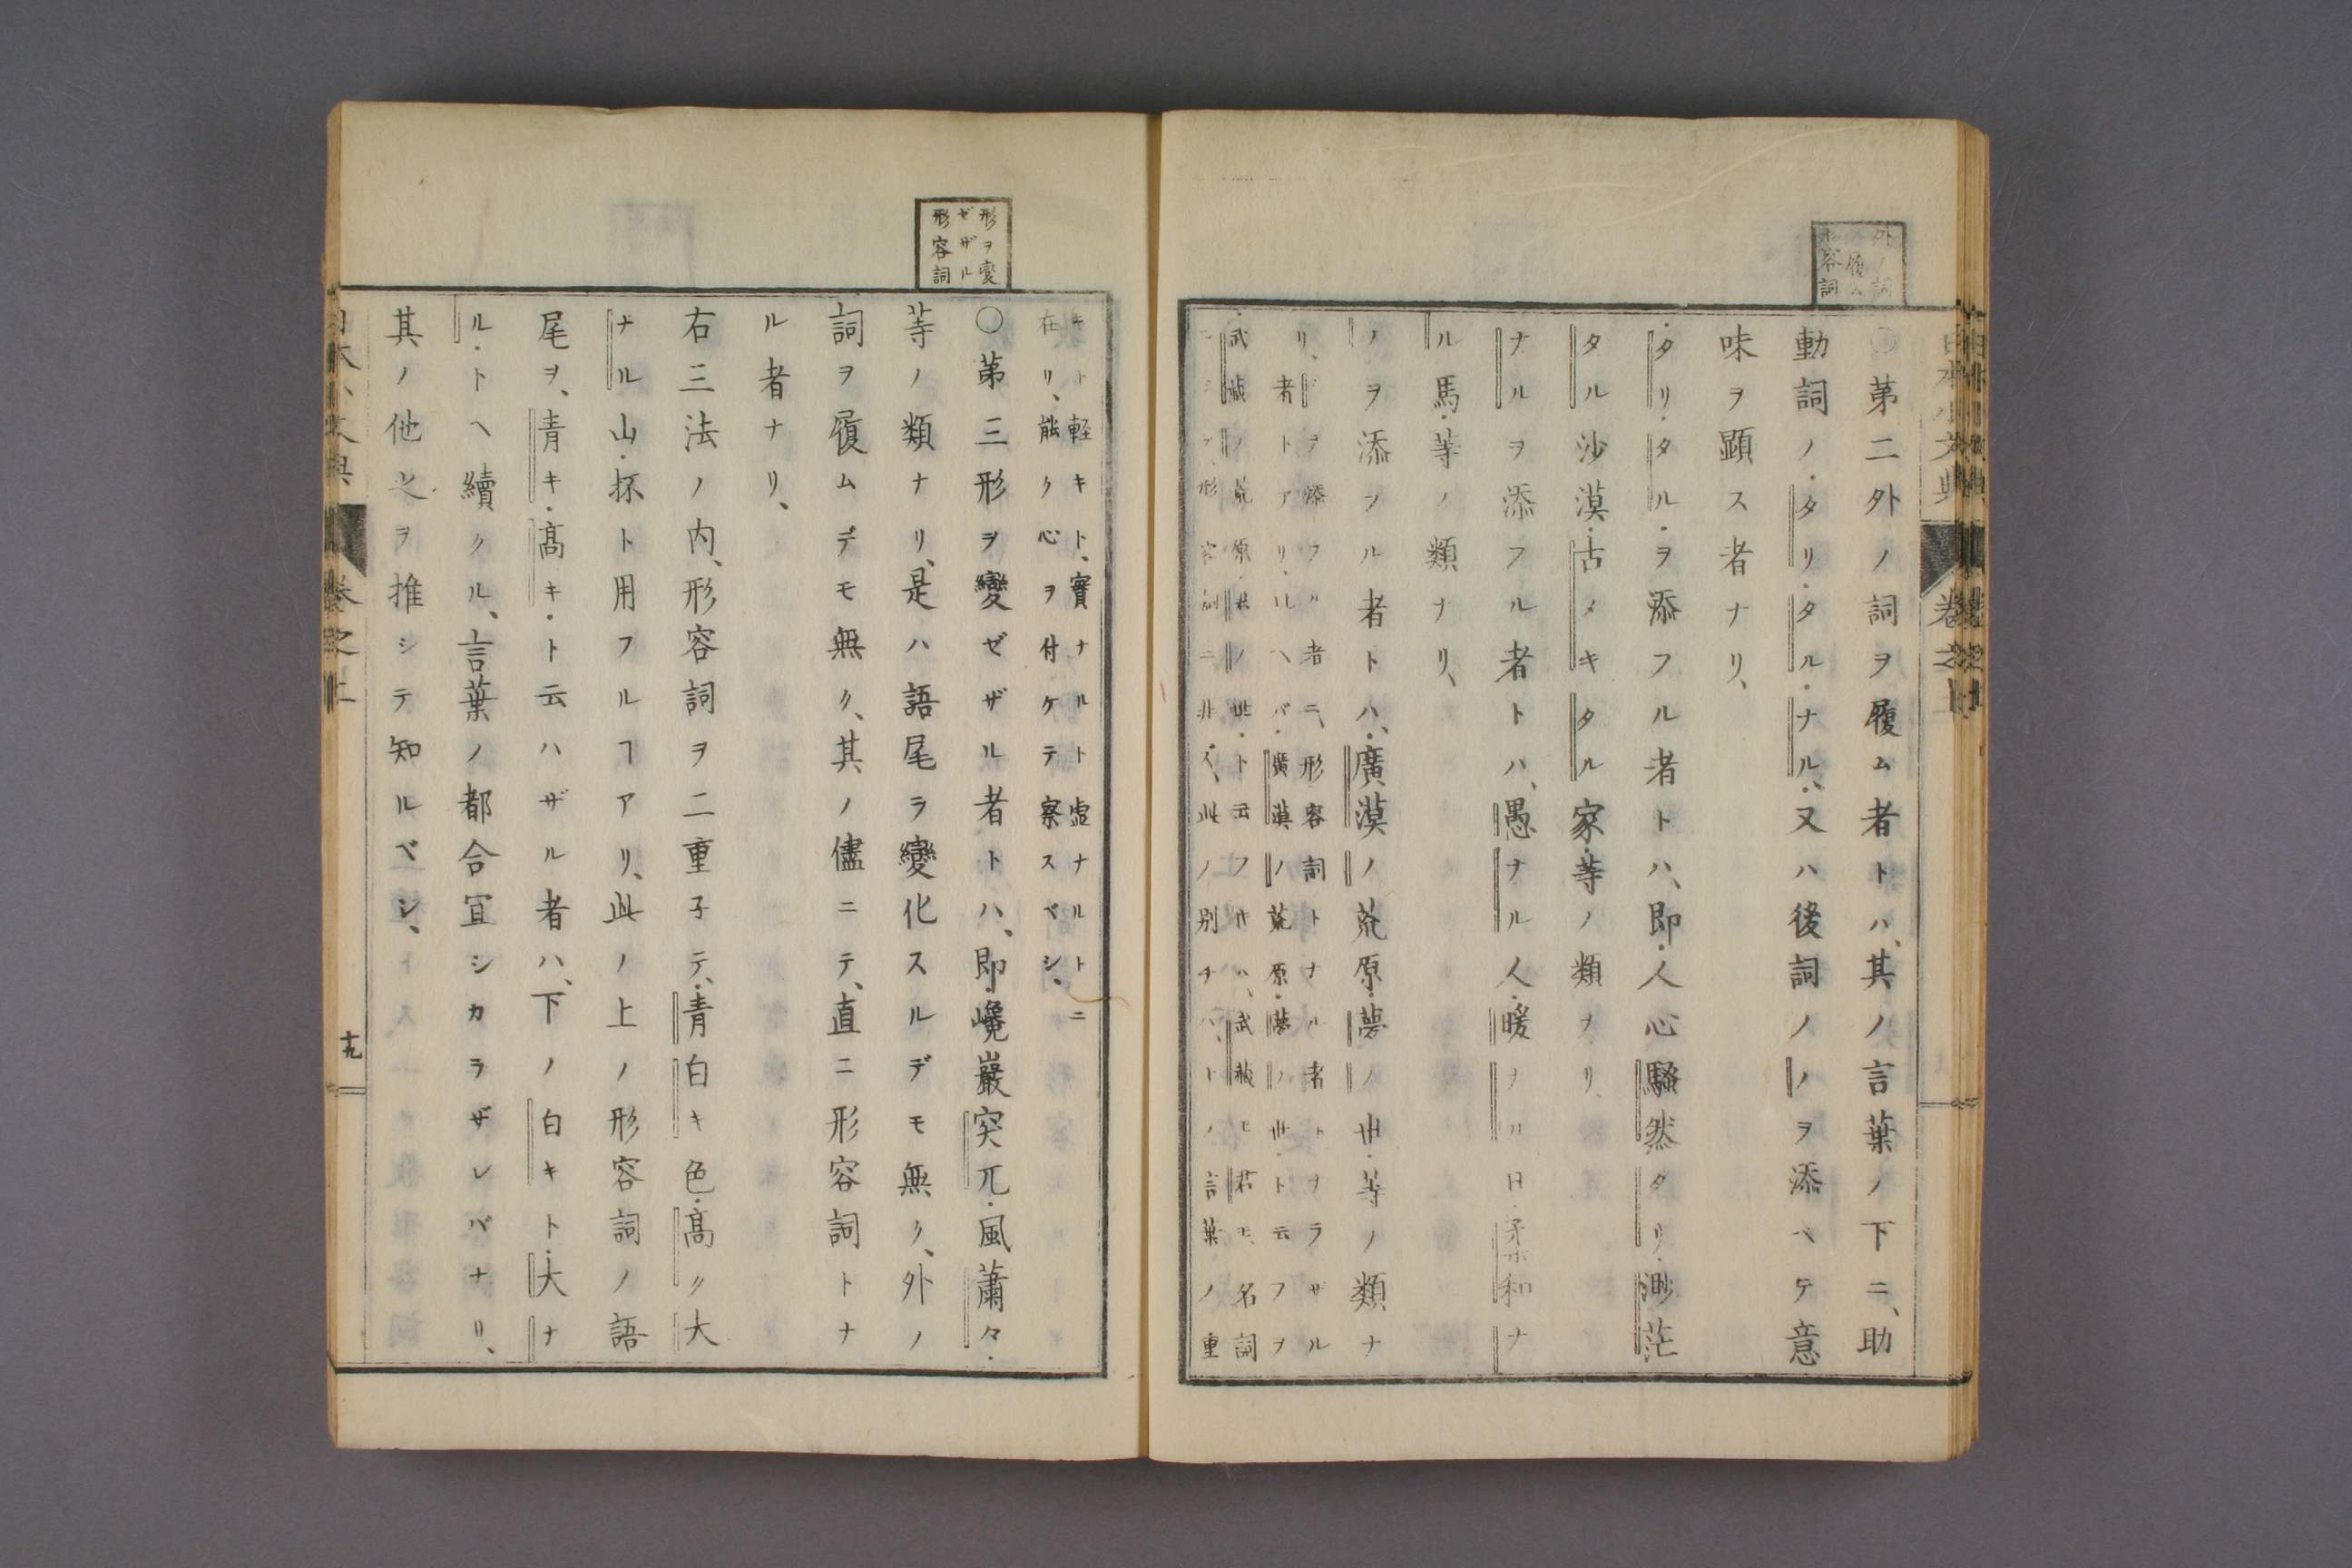 外ノ詞
ヲ履ム
形容詞
〇苐二外ノ詞ヲ履ム者トハ、其ノ言葉ノ下ニ、助
動詞ノ・タリ・タル・ナル・、又ハ後詞ノノヲ添ヘテ意
味ヲ顕ス者ナリ、
・タリ・タル・ヲ添フル者トハ、即・人心騒然タリ・渺茫
タル沙漠・古メキタル家・等ノ類ナリ、
ナルヲ添フル者トハ、愚ナル人・暖ナル日・柔和ナ
ル馬・等ノ類ナリ、
ノヲ添フル者トハ、・廣漠ノ荒原・夢ノ世・等ノ類ナ
リ、ノヲ添フル者ニ、形容詞トナル者トナラザル
者トアリ、例ヘバ・廣漠ノ荒原・夢ノ世・ト云フヲ
・武蔵ノ荒原・君ノ世・ト云フ時ハ、武蔵モ君モ、名詞
ニシテ、形容詞ニ非ズ、此ノ別チハ、トノ言葉ノ重
キト軽キト、實ナルト虚ナルトニ
在リ、能ク心ヲ付ケテ察スベシ、
形ヲ變
ゼザル
形容詞
〇苐三形ヲ變ゼザル者トハ、即・巉巖突兀・風蕭々・
等ノ類ナリ、是ハ語尾ヲ變化スルデモ無ク、外ノ
詞ヲ履ムデモ無ク、其ノ儘ニテ、直ニ形容詞トナ
ル者ナリ、
右三法ノ内、形容詞ヲ二重子テ、・青白キ色・髙ク大
ナル山・抔ト用フルヿアリ、此ノ上ノ形容詞ノ語
尾ヲ、青キ・髙キ・ト云ハザル者ハ、下ノ白キト・大ナ
ル・トヘ續クル、言葉ノ都合宜シカラザレバナリ、
其ノ他之ヲ推シテ知ルベシ、
日本小文典
巻之上
十九